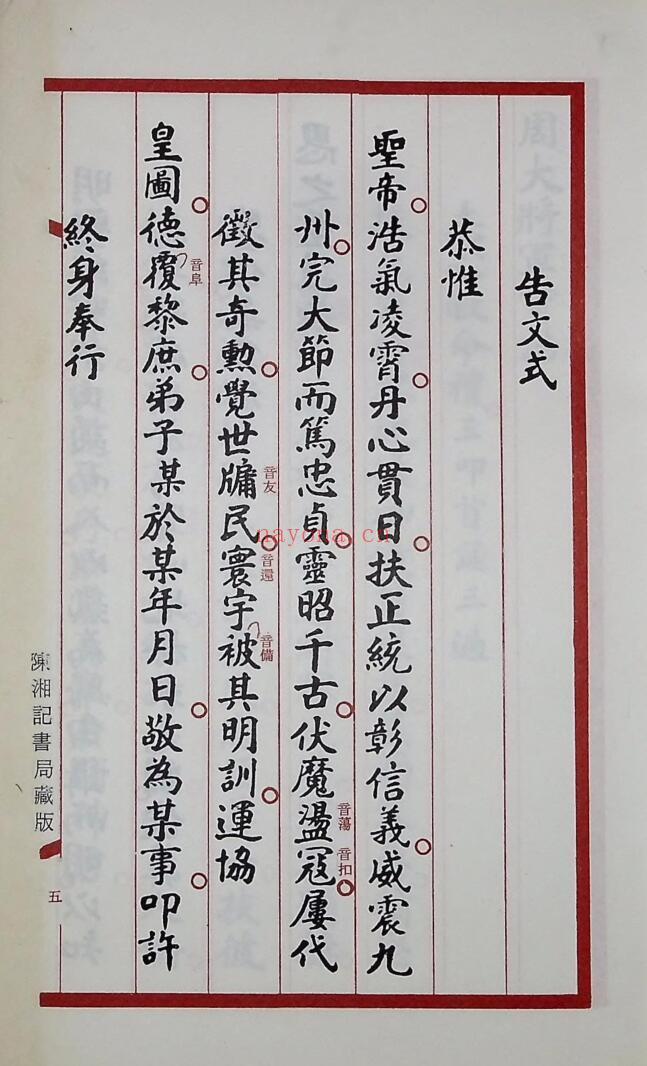 告文式
恭惟
聖帝浩氣凌霄丹心貫日扶正統以彰信義威震九
州完大節而篤忠貞靈昭千古伏魔盪寇屢代
音蕩
音扣
徵其奇勳覺世牖民寰宇被其明訓運協
音友
音還
音備
皇圖德覆黎庶弟子某於某年月日敬為某事叩許
音阜
終身奉行
陳湘記書局藏版
五
nayona.cn